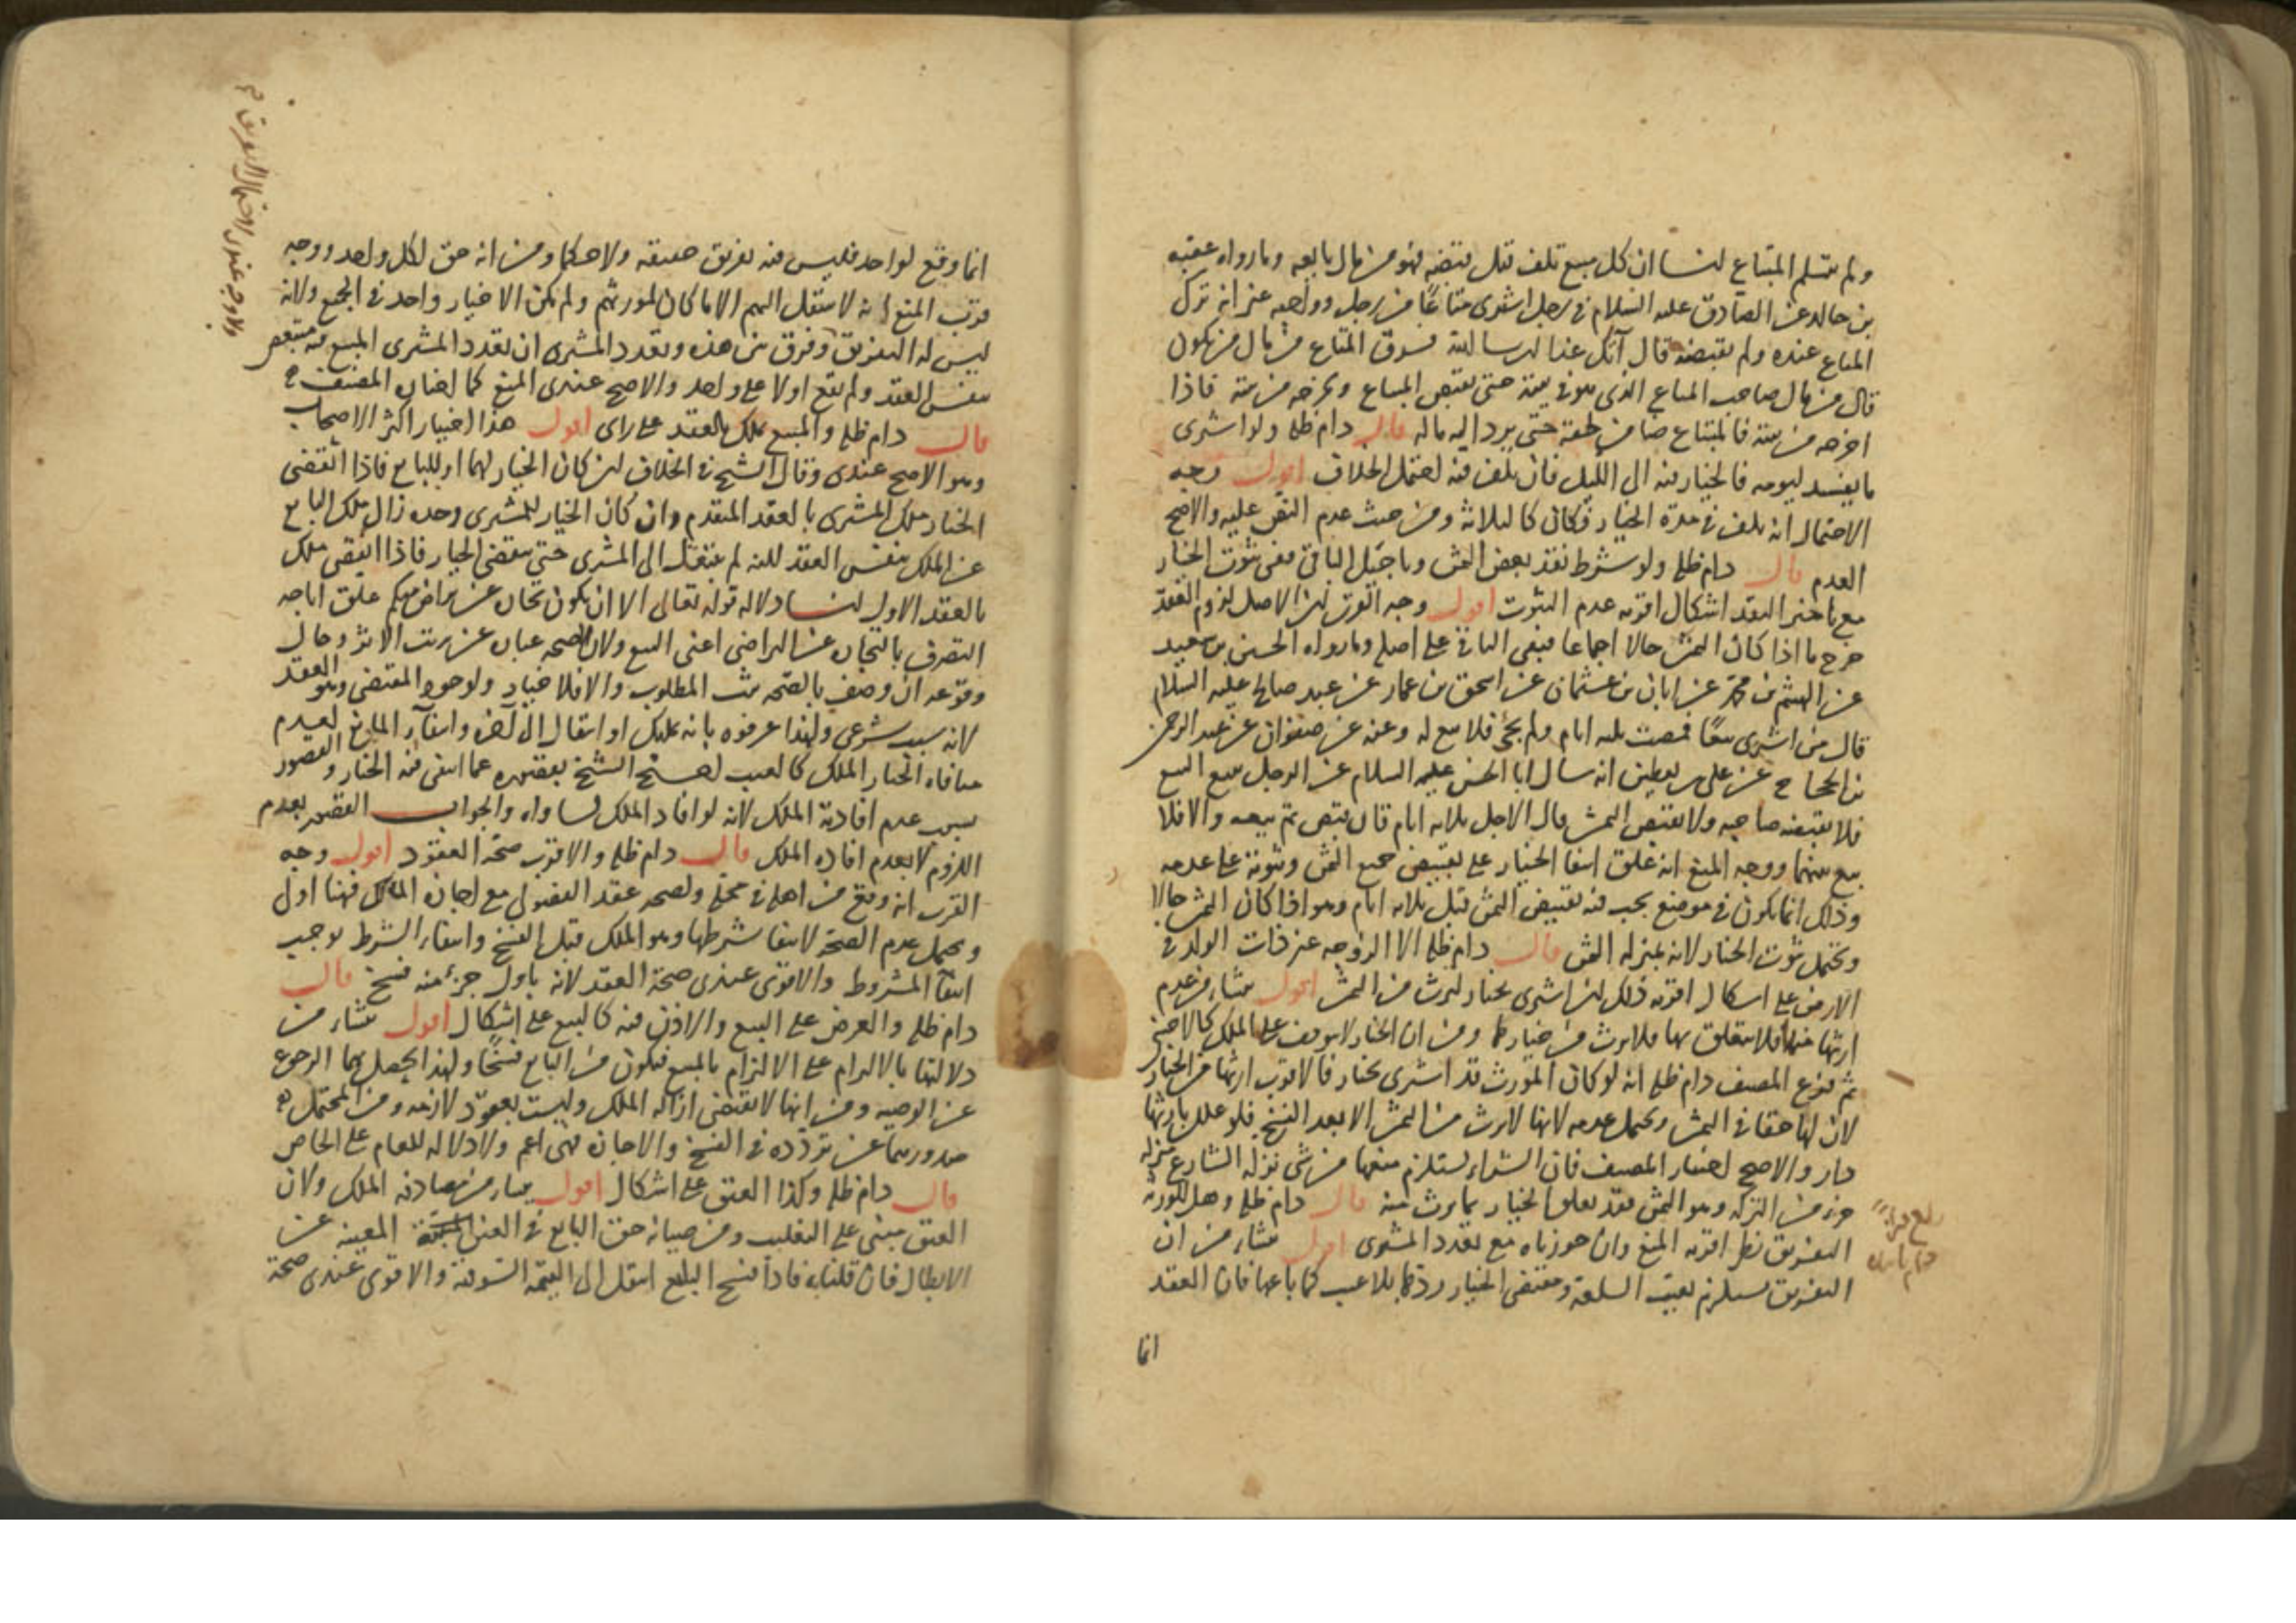 ولم يتسلم المبتاع لنا ان كل مبيع تلف قبل قبضه فهو من مال بايعه وما رواه عقبه
بن خالد عن الصادق عليه السلام في رجل اشترى متاعًا من رجل وواجبه غير انه ترك
المتاع عنده ولم يقبضه قال آتيك غدا ان شا الله فسرق المتاع من مال من يكون
قال من مال صاحب المتاع الذى هو في بيته حتى يقبض المتاع ويخرجه من بيته فاذا
اخرجه من بيته فالمبتاع ضامن لحقه حتى يرد اليه ماله قال دام ظله ولو اشترى
ما يفسد ليومه فالخيار فيه الى الليل فان تلف فيه احتمل الخلاف اقول وجه
الاحتمال انه تلف في مدة الخيار فكان كالثلاثة ومن حيث عدم النص عليه والاصح
العدم قال دام ظله ولو شرط نقد بعض الثمن وتاجيل الباقي ففى ثبوت الخيار
مع تاخير النقد اشكال اقربه عدم الثبوت اقول وجه القرب ان الاصل لزوم العقد
خرج ما اذا كان الثمن حالا اجماعا فيبقى الباقي على اصله وما رواه الحسين بن سعيد
عن الهيثم بن محمد عن ابان بن عثمان عن اسحق بن عمار عن عبد صالح عليه السلام
قال من اشترى بيعًا فمضت ثلثه ايام ولم يجئ فلا بيع له وعنه عن صفوان عن عبد الرحمن
بن الحجاج عن على بن يقطين انه سال ابا الحسن عليه السلام عن الرجل يبيع البيع
فلا يقبضه صاحبه ولا يقبض الثمن قال الاجل ثلاثه ايام فان قبض ثم بيعه والا فلا
بيع بينهما ووجه المنع انه علق انتفا الخيار على تقبيض جميع الثمن وثبوته على عدمه
وذلك انما يكون في موضع يجب فيه تقبيض الثمن قبل ثلاثه ايام وهو اذا كان الثمن حالا
ويحتمل ثبوت الخيار لانه بمنزله الثمن قال دام ظله الا الزوجه غير ذات الولد في
الارض على اشكال اقربه ذلك ان اشترى بخيار لترث من الثمن اقول ينشاء من عدم
ارثها منها فلا يتعلق بها فلا ترث من خيارها ومن ان الخيار لا يتوقف على الملك كالاجنبي
ثم فرع المصنف دام ظله انه لو كان المورث قد اشترى بخيار فالاقرب ارثها من الخيار
لان لها حقا في الثمن ويحتمل عدمه لانها لا ترث من الثمن الا بعد الفسخ فلو علل بارثها
دار والاصح اختيار المصنف فان الشراء يستلزم منعها من شى نزله الشارع منزله
جزء من التركه وهو الثمن فقد تعلق الخيار بما ترث منه قال دام ظله وهل للورثه
التفريق نظر اقربه المنع وان جوزناه مع تعدد المشترى اقول ينشاء من ان
التفريق يستلزم تعيب السلعة ومقتضى الخيار ردها بلا عيب كما باعها فان العقد
انما
بلغ قراءة
دام
انما وقع لواحد فليس فيه تفريق حقيقه ولا حكما ومن انه حق لكل واحد ووجه
قرب المنع انه لا ينتقل اليهم الا ما كان لمورثهم ولم يكن الا خيار واحد في الجميع ولانه
ليس له التفريق وفرق بين هذه وتعدد المشترى ان تعدد المشترى المبيع فيه متبعض
بنفس العقد ولم يقع اولا على واحد والاصح عندى المنع كما اختاره المصنف
قال دام ظله والمبيع يملك بالعقد على راى اقول هذا اختيار اكثر الاصحاب
وهو الاصح عندى وقال الشيخ في الخلاف ان كان الخيار لهما او للبايع فاذا انقضى
الخيار ملك المشترى بالعقد المتقدم وان كان الخيار للمشترى وحده زال ملك البايع
عن الملك بنفس العقد لكنه لم ينتقل الى المشترى حتى ينقضى الخيار فاذا انقضى ملك
بالعقد الاول لنا دلاله قوله تعالى الا ان يكون تجارة عن تراض منكم علق اباحه
التصرف بالتجارة عن التراضى اعنى البيع ولان الصحه عبارة عن ترتب الاثر وحال
وقوعه ان وصف بالصحه ثبت المطلوب والا فلا خيار ولوجود المقتضى وهو العقد
لانه سبب شرعى ولهذا عرفوه بانه تمليك او انتقال الى آخره وانتفاء المانع لعدم
منافاه الخيار الملك كالعيب احتج الشيخ بقصوره عما انتفى فيه الخيار والقصور
بسبب عدم افادته الملك لانه لو افاد الملك لساواه والجواب القصور بعدم
اللزوم لا بعدم افاده الملك قال دام ظله والاقرب صحة العقود اقول وجه
القرب انه وقع من اهله في محله ولصحه عقد الفضولى مع اجازه المالك فهنا اولى
ويحتمل عدم الصحة لانتفا شرطها وهو الملك قبل الفسخ وانتفاء الشرط يوجب
انتفاء المشروط والاقوى عندى صحة العقد لانه باول جزء منه فسخ قال
دام ظله والعرض على البيع والاذن فيه كالبيع على اشكال اقول ينشاء من
دلالتها بالالتزام على الالتزام بالمبيع فيكون من البايع فسخًا ولهذا يحصل بهما الرجوع
عن الوصيه ومن انها لا تقتضى ازاله الملك وليست بعقود لازمه ومن المحتمل
صدورهما عن تردده في الفسخ والاجازه فهى اعم ولا دلاله للعام على الخاص
قال دام ظله وكذا العتق على اشكال اقول ينشاء من مصادفه الملك ولان
العتق مبنى على التغليب ومن صيانه حق البايع في العين المعينه عن
الابطال فان قلنا به فاذا فسخ البايع انتقل الى القيمة السوقية والاقوى عندى صحة